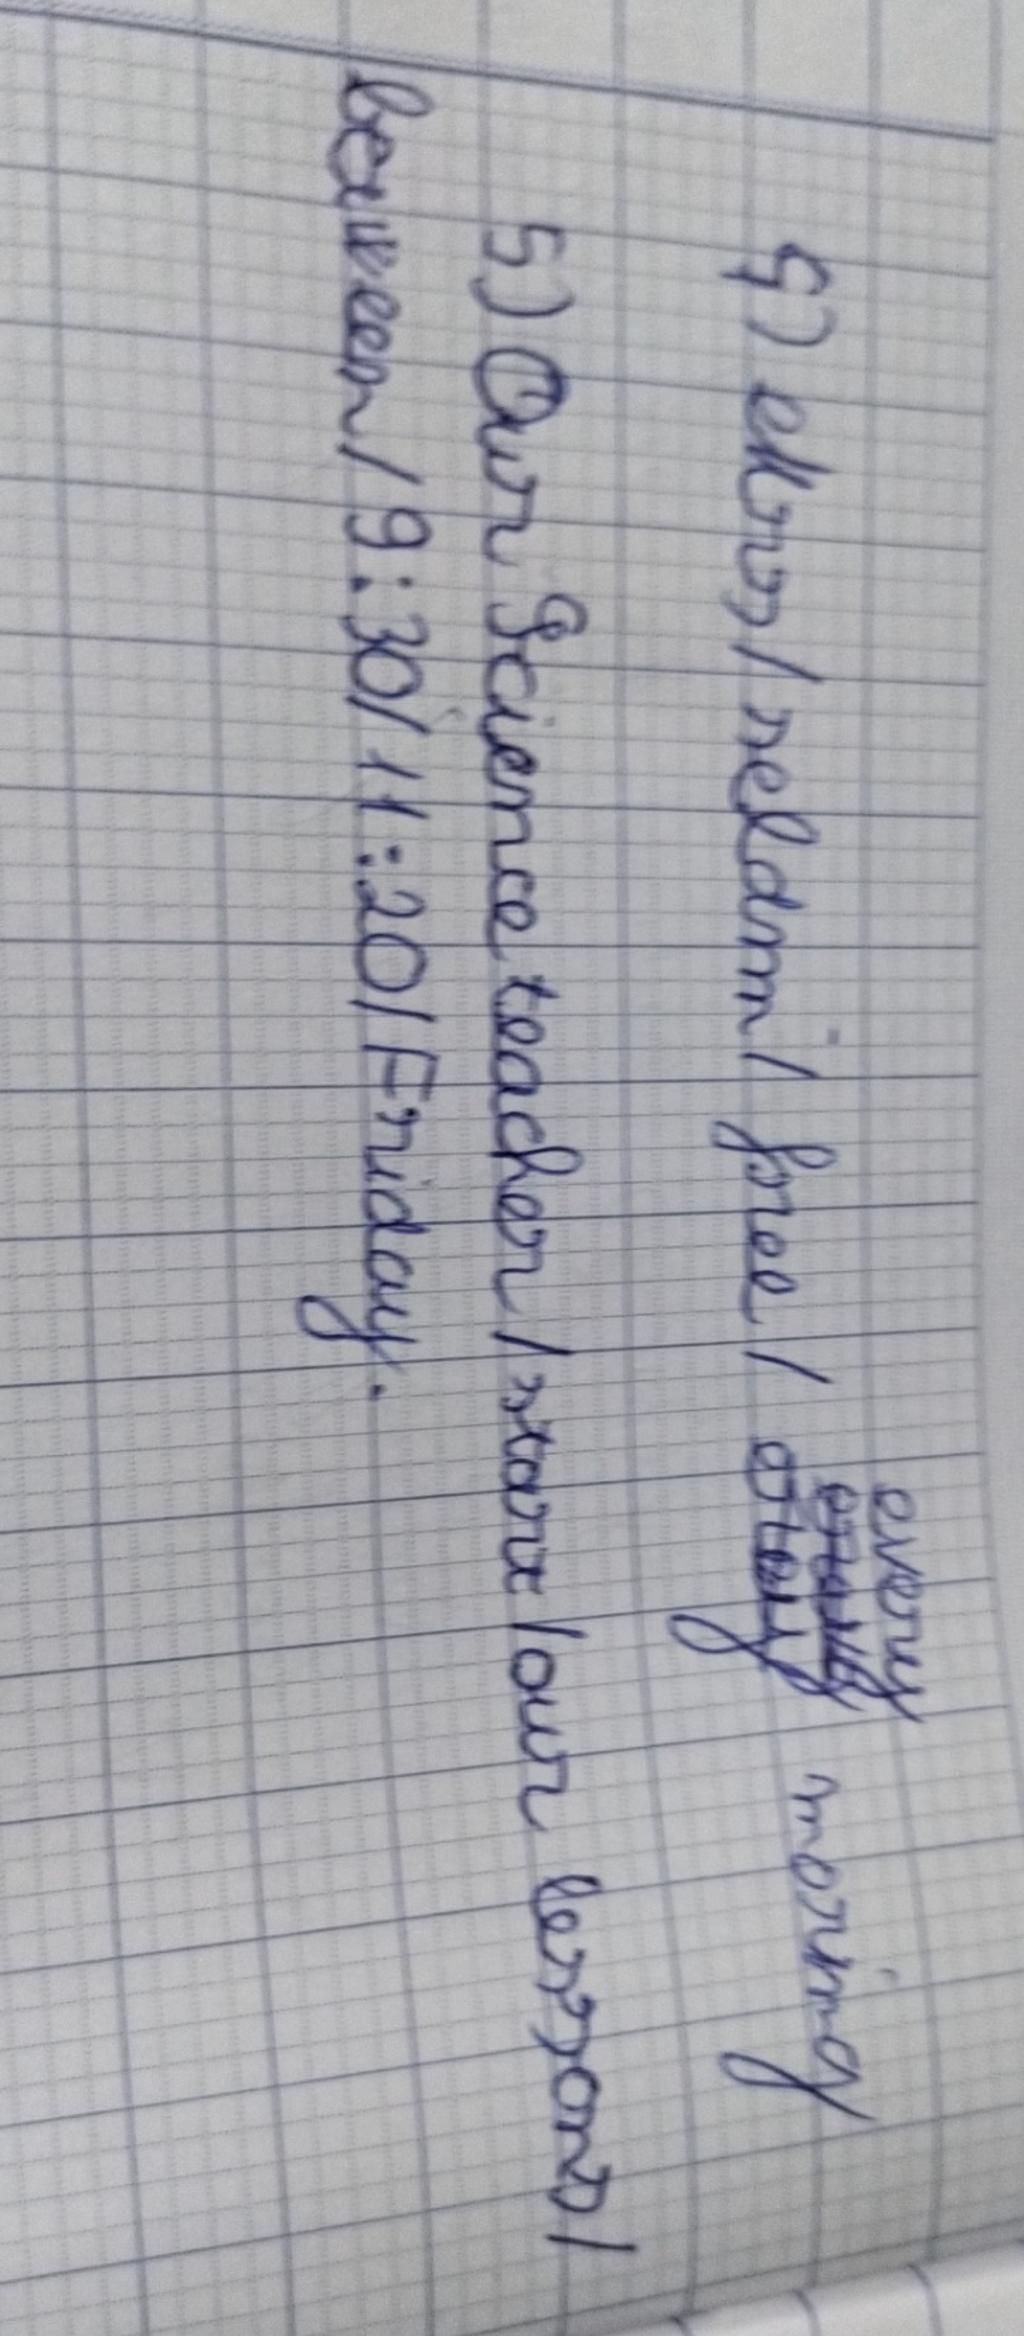 every
4) elros / seldm / free / morning
5) Our Science teacher / start / our lessons /
between / 9:30 / 11:20 / Friday.